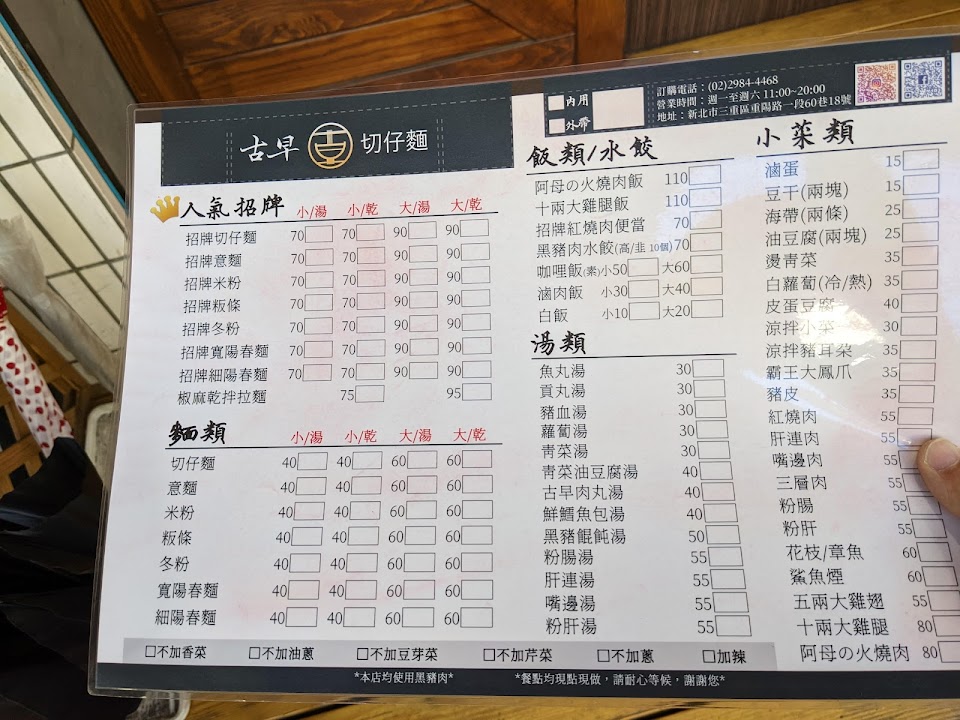 古早 古 切仔麵
內用
外帶
訂購電話：(02)2984-4468
營業時間：週一至週六 11:00~20:00
地址：新北市三重區重陽路一段60巷18號
人氣招牌 小/湯 小/乾 大/湯 大/乾
招牌切仔麵 70 70 90 90
招牌意麵 70 70 90 90
招牌米粉 70 70 90 90
招牌粄條 70 70 90 90
招牌冬粉 70 70 90 90
招牌寬陽春麵 70 70 90 90
招牌細陽春麵 70 70 90 90
椒麻乾拌拉麵 75 95
麵類 小/湯 小/乾 大/湯 大/乾
切仔麵 40 40 60 60
意麵 40 40 60 60
米粉 40 40 60 60
粄條 40 40 60 60
冬粉 40 40 60 60
寬陽春麵 40 40 60 60
細陽春麵 40 40 60 60
飯類/水餃
阿母の火燒肉飯 110
十兩大雞腿飯 110
招牌紅燒肉便當 70
黑豬肉水餃(高/韭 10個) 70
咖哩飯(素) 小50 大60
滷肉飯 小30 大40
白飯 小10 大20
湯類
魚丸湯 30
貢丸湯 30
豬血湯 30
蘿蔔湯 30
青菜湯 30
青菜油豆腐湯 40
古早肉丸湯 40
鮮鱈魚包湯 40
黑豬餛飩湯 50
粉腸湯 55
肝連湯 55
嘴邊湯 55
粉肝湯 55
小菜類
滷蛋 15
豆干(兩塊) 15
海帶(兩條) 25
油豆腐(兩塊) 25
燙青菜 35
白蘿蔔(冷/熱) 35
皮蛋豆腐 40
涼拌小菜 30
涼拌豬耳朵 35
霸王大鳳爪 35
豬皮 35
紅燒肉 55
肝連肉 55
嘴邊肉 55
三層肉 55
粉腸 55
粉肝 55
花枝/章魚 60
鯊魚煙 60
五兩大雞翅 55
十兩大雞腿 80
阿母の火燒肉 80
□不加香菜 □不加油蔥 □不加豆芽菜 □不加芹菜 □不加蔥 □加辣
*本店均使用黑豬肉* *餐點均現點現做，請耐心等候，謝謝您*